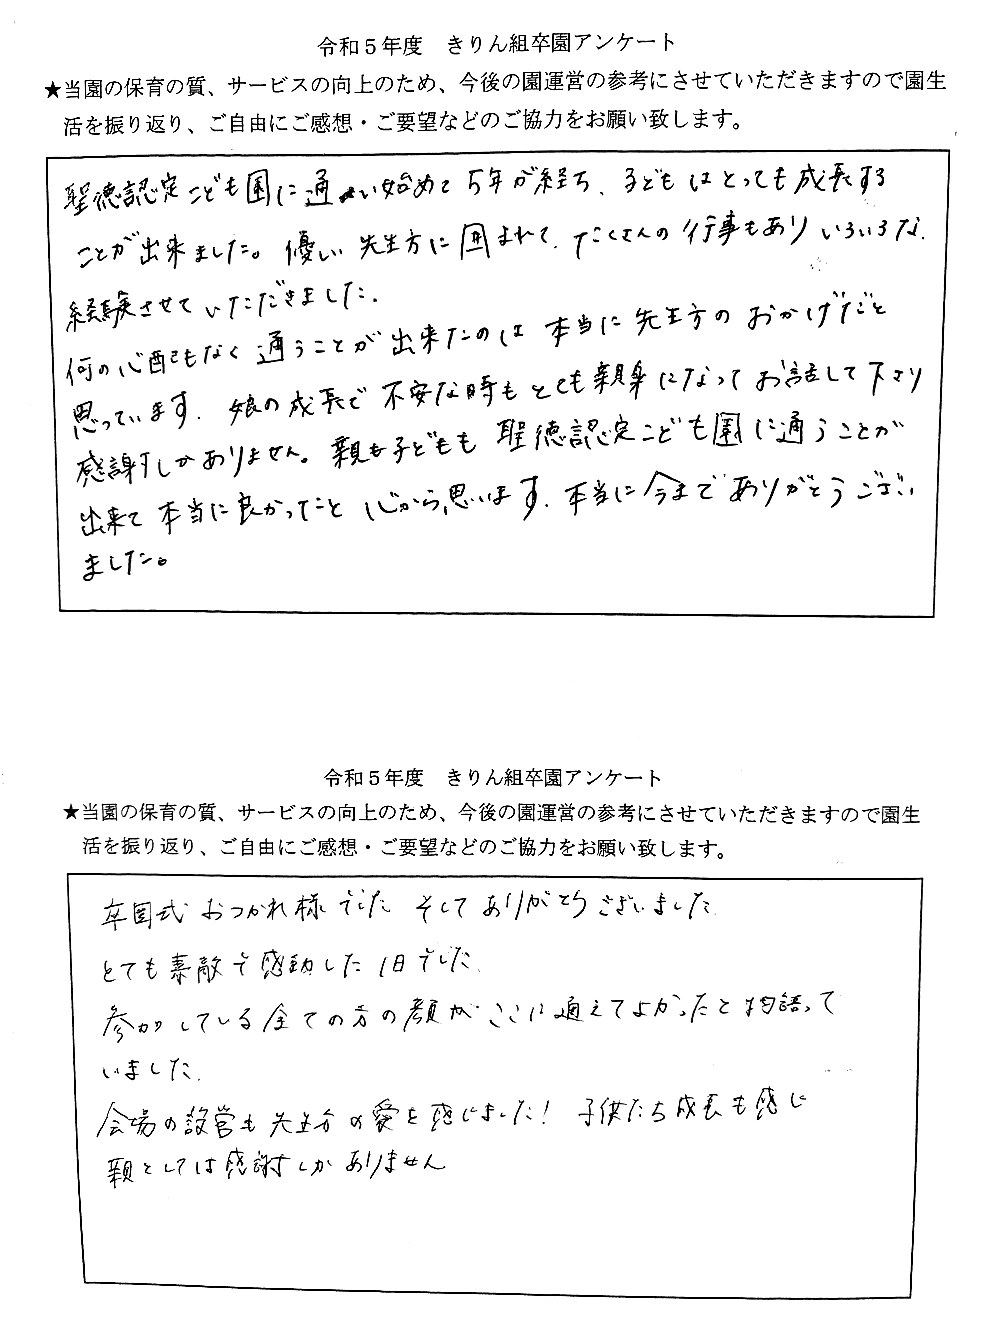 令和５年度　きりん組卒園アンケート
★当園の保育の質、サービスの向上のため、今後の園運営の参考にさせていただきますので園生
活を振り返り、ご自由にご感想・ご要望などのご協力をお願い致します。
聖徳認定こども園に通い始めて5年が経ち、子どもはとっても成長する
ことが出来ました。優しい先生方に囲まれて、たくさんの行事もありいろいろな
経験させていただきました。
何の心配もなく通うことが出来たのは本当に先生方のおかげだと
思っています。娘の成長で不安な時もとても親身になってお話して下さり
感謝しかありません。親も子どもも聖徳認定こども園に通うことが
出来て本当に良かったと心から思います。本当に今までありがとうござい
ました。
令和５年度　きりん組卒園アンケート
★当園の保育の質、サービスの向上のため、今後の園運営の参考にさせていただきますので園生
活を振り返り、ご自由にご感想・ご要望などのご協力をお願い致します。
卒園式おつかれ様でした そしてありがとうございました
とても素敵で感動した1日でした
参加している全ての方の顔がここに通えてよかったと物語って
いました
会場の設営も先生方の愛を感じました! 子供たち成長も感じ
親としては感謝しかありません